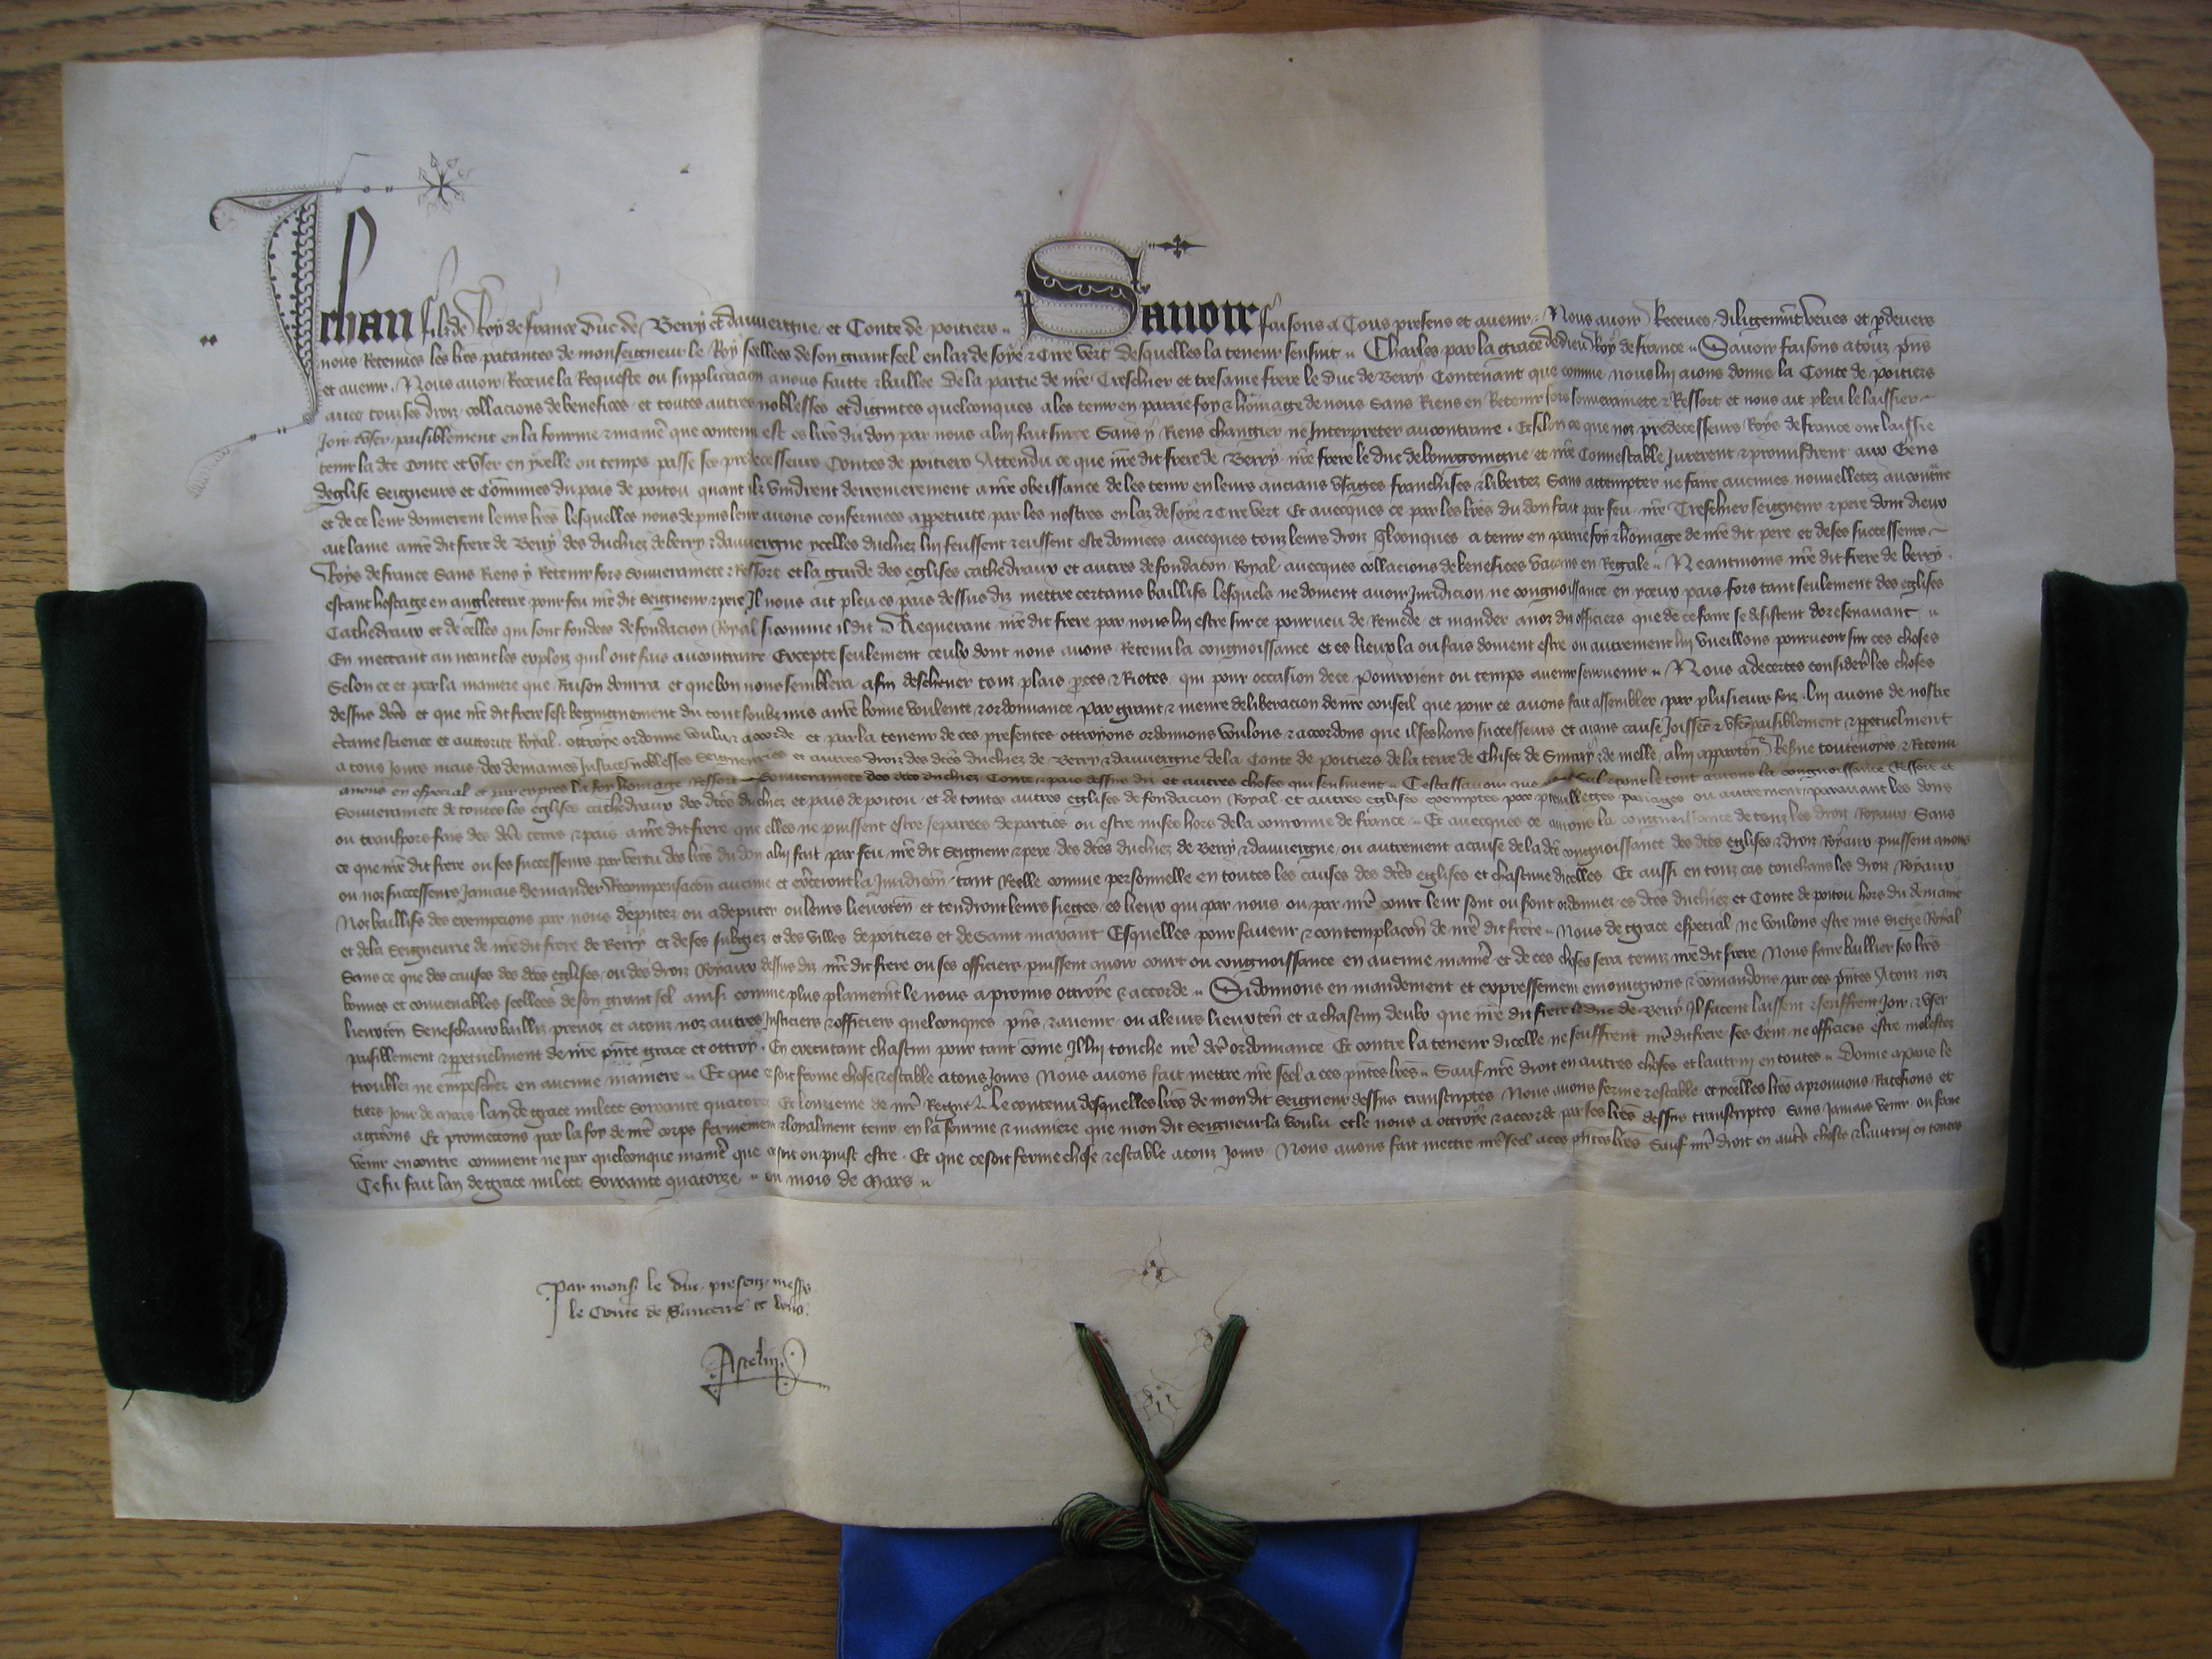 Jehan filz de Roy de france Duc de Berry et dauuergne et Conte de poitiers Sauoir faisons a Tous presens et auenir Nous auoir Receues diligenmt veues et pdeuers
nous Retenues les lres patantes de monseigneur le Roy seellees de son grant seel en laz de soye & cire vert desquelles la teneur sensuit Charles par la grace de dieu Roy de france Sauoir faisons a touz pns
et auenir Nous auoir Receue la Requeste ou supplicacion a nous faitte & baillee de la partie de nre Treschier et tresame frere le duc de Berry Contenant que comme nous lui aions donne la Conte de poitiers
auec touz ses droiz collacions de benefices et toutes autres noblesses et dignites quelconques a les tenir en parrie foy & homage de nous Sans Riens en Retenir fors souuerainete & Ressort et nous ait pleu le laissier
Joir & vser paisiblement en la fourme & manie que contenu est es lres du don par nous a lui fait sur ce Sans y Riens changier ne Interpreter au contraire Et selon ce que noz predecesseurs Roys de france ont laissie
tenir la dte Conte et vser en ycelle ou temps passe ses predecesseurs Contes de poitiers Attendu ce que nre dit frere de Berry nre frere le duc de bourgoingne et nre Connestable Jurerent & promisdrent aux Gens
deglise Seigneurs et Communes du pais de poitou quant ilz vindrent derrenierement a nre obeissance de les tenir en leurs ancians vsages franchises & libertez Sans attempter ne faire aucunes nouuelletez au contraire
et de ce leur donnerent leurs lres lesquelles nous depuis leur auons confermees a ppetuite par les nostres en laz de soye & cire vert Et auecques ce par les lres du don fait par feu nre Treschier seigneur & pere dont dieux
ait lame a nre dit frere de Berry des duchiez de berry & dauuergne ycelles duchiez lui feussent & eussent este donnees auecques touz leurs droiz qlconques a tenir en parrie foy & homage de nre dit pere et de ses successeurs
Roys de france Sans Riens y Retenir fors souuerainete & Ressort et la garde des eglises cathedraux et autres de fondacon Royal auecques collacions de benefices vacans en Regale Neantmoins nre dit frere de berry
estant hostage en angleterre pour feu nre dit seigneur & pere Il nous ait pleu es pais dessus diz mettre certains baillifs lesquels ne doiuent auoir Juridicion ne congnoissance en yceux pais fors tant seulement des eglises
Cathedraux et de celles qui sont fondees de fondacion Royal si comme il dit Requerant nre dit frere par nous lui estre sur ce pourueu de Remede et mander a noz diz officiers que de ce faire se desistent doresenauant
En mettant au neant les exploiz quil ont fais au contraire Excepte seulement ceulx dont nous auons Retenu la congnoissance et es lieux la ou fais doiuent estre ou autrement lui vueillons pourueoir sur ces choses
Selon ce et par la maniere que Raison donrra et que bon nous semblera afin deschever touz plais pces & Riotes qui pour occasion de ce pourroient ou temps auenir seuruenir Nous adecertes considere les choses
dessus dtes et que nre dit frere sest begnignement du tout soubzmis a nre bonne voulente & ordonnance par grant & meure deliberacion de nre conseil que pour ce auons fait assembler par plusieurs foiz lui auons de nostre
ctaine science et auttorite Royal ottroye ordonne voulu & accorde et par la teneur de ces presentes ottroyons ordonnons voulons & accordons que il ses hoirs successeurs et aians cause Joissent & vsent paisiblement & ppetuelment
a tous jours mais des demaines Justices noblesses Seigneuries et autres droiz des dtes duchiez de Berry & dauuergne de la Conte de poitiers de la terre de Chisec de Siuray & de melle a lui apparten Reserue toutesuoyes & Retenu
auons en especial et par expres la foy homage Ressort & Souuerainete des dtes duchiez Conte & pais dessus diz et autres choses qui sensiuent Cest assauoir que pour le tout aurons la congnoissance Ressort et
Souuerainete de toutes les eglises cathedraux des dtes duchiez et pais de poitou et de toutes autres eglises de fondacion Royal et autres eglises exemptes par preuilleges pariages ou autrement parauant les dons
ou transpors fais des dtes terres & pais a nre dit frere que elles ne puissent estre separees departies ou estre mises hors de la couronne de france Et auecques ce aurons la congnoissance de touz les droiz Royaux Sans
ce que nre dit frere ou ses successeurs par vertu des lres du don a lui fait par feu nre dit Seigneur & pere des dtes duchiez de Berry & dauuergne ou autrement a cause de la dte congnoissance des dtes eglises & droiz Royaux puissent a nous
ou noz successeurs Jamais demander Recompensacon aucune et exerceront la Juridicon tant Reelle comme personnelle en toutes les causes des dtes eglises et chascune dicelles Et aussi en touz cas touchans les droiz Royaux
Noz baillifs des exempcions par nous deputez ou a deputer ou leurs lieuxten et tendront leurs sieges es lieux qui par nous ou par nre court leur sont ou seront ordonnez es dtes duchiez et Conte de poitou hors du demaine
et de la Seigneurie de nre dit frere de Berry et de ses subgiez et des villes de poitiers et de Saint maxant Esquelles pour faueur & contemplacon de nre dit frere Nous de grace especial ne voulons estre mis Siege Royal
Sans ce que des causes des dtes eglises ou des droiz Royaux dessus diz nre dit frere ou ses officiers puissent auoir court ou congnoissance en aucune manie et de ces choses sera tenuz nre dit frere Nous faire baillier ses lres
bonnes et conuenables seellees de son grant seel ainsi comme plus plainemt le nous a promis ottroye & accorde Si donnons en mandement et expressement enioingnons & comandons par ces pntes A touz noz
lieuxten Seneschaux bailliz preuoz et a touz noz autres Justiciers & officiers quelconques pns & auenir ou a leurs lieuxten et a chascun deulx que nre dit frere le duc de Berry Il facent laissent & seuffrent Joir & vser
paisiblement & ppetuelment de nre pnte grace et ottroy En executant chascun pour tant come Il lui touche nre dte ordonnance Et contre la teneur dicelle ne seuffrent nre dit frere ses Gens ne officiers estre molestez
troublez ne empeschez en aucune maniere Et que ce soit ferme chose & estable a touz Jours Nous auons fait mettre nre seel a ces pntes lres Sauf nre droit en autres choses et lautrui en toutes Donne a paris le
tiers jour de mars lan de grace mil ccc soixante quatorze Et lonzieme de nre Regne Le contenu desquelles lres de mon dit Seigneur dessus transcriptes Nous auons ferme & estable et ycelles lres aprouuons Ratefions et
agreons Et promettons par la foy de nre corps fermement & loyalment tenir en la fourme & maniere que mon dit Seigneur la voulu et le nous a ottroye & accorde par ses lres dessus transcriptes Sans Jamais venir ou faire
venir encontre comment ne par quelconque manie que ce soit ou puist estre Et que ce soit ferme chose & estable a touz Jours Nous auons fait mettre nre seel a ces pntes lres Sauf nre droit en autres choses & lautrui en toutes
Ce fu fait lan de grace mil ccc Soixante quatorze ou mois de Mars
Par mons le duc presenz mess
le Conte de Sancerre et vous
Ascelin